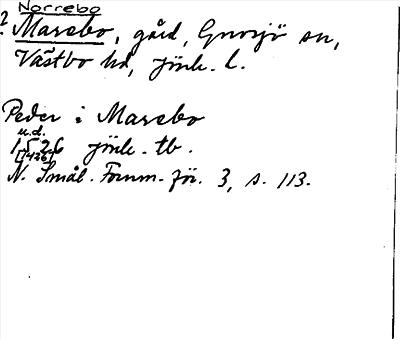 Norrebo
? Marebo, gård, Gnosjö sn,
Västbo hd, Jönk. l.
Peder i Marebo
u.d.
1526 Jönk. tb.
(1426)
N. Smål. Fornm. för. 3, s. 113.